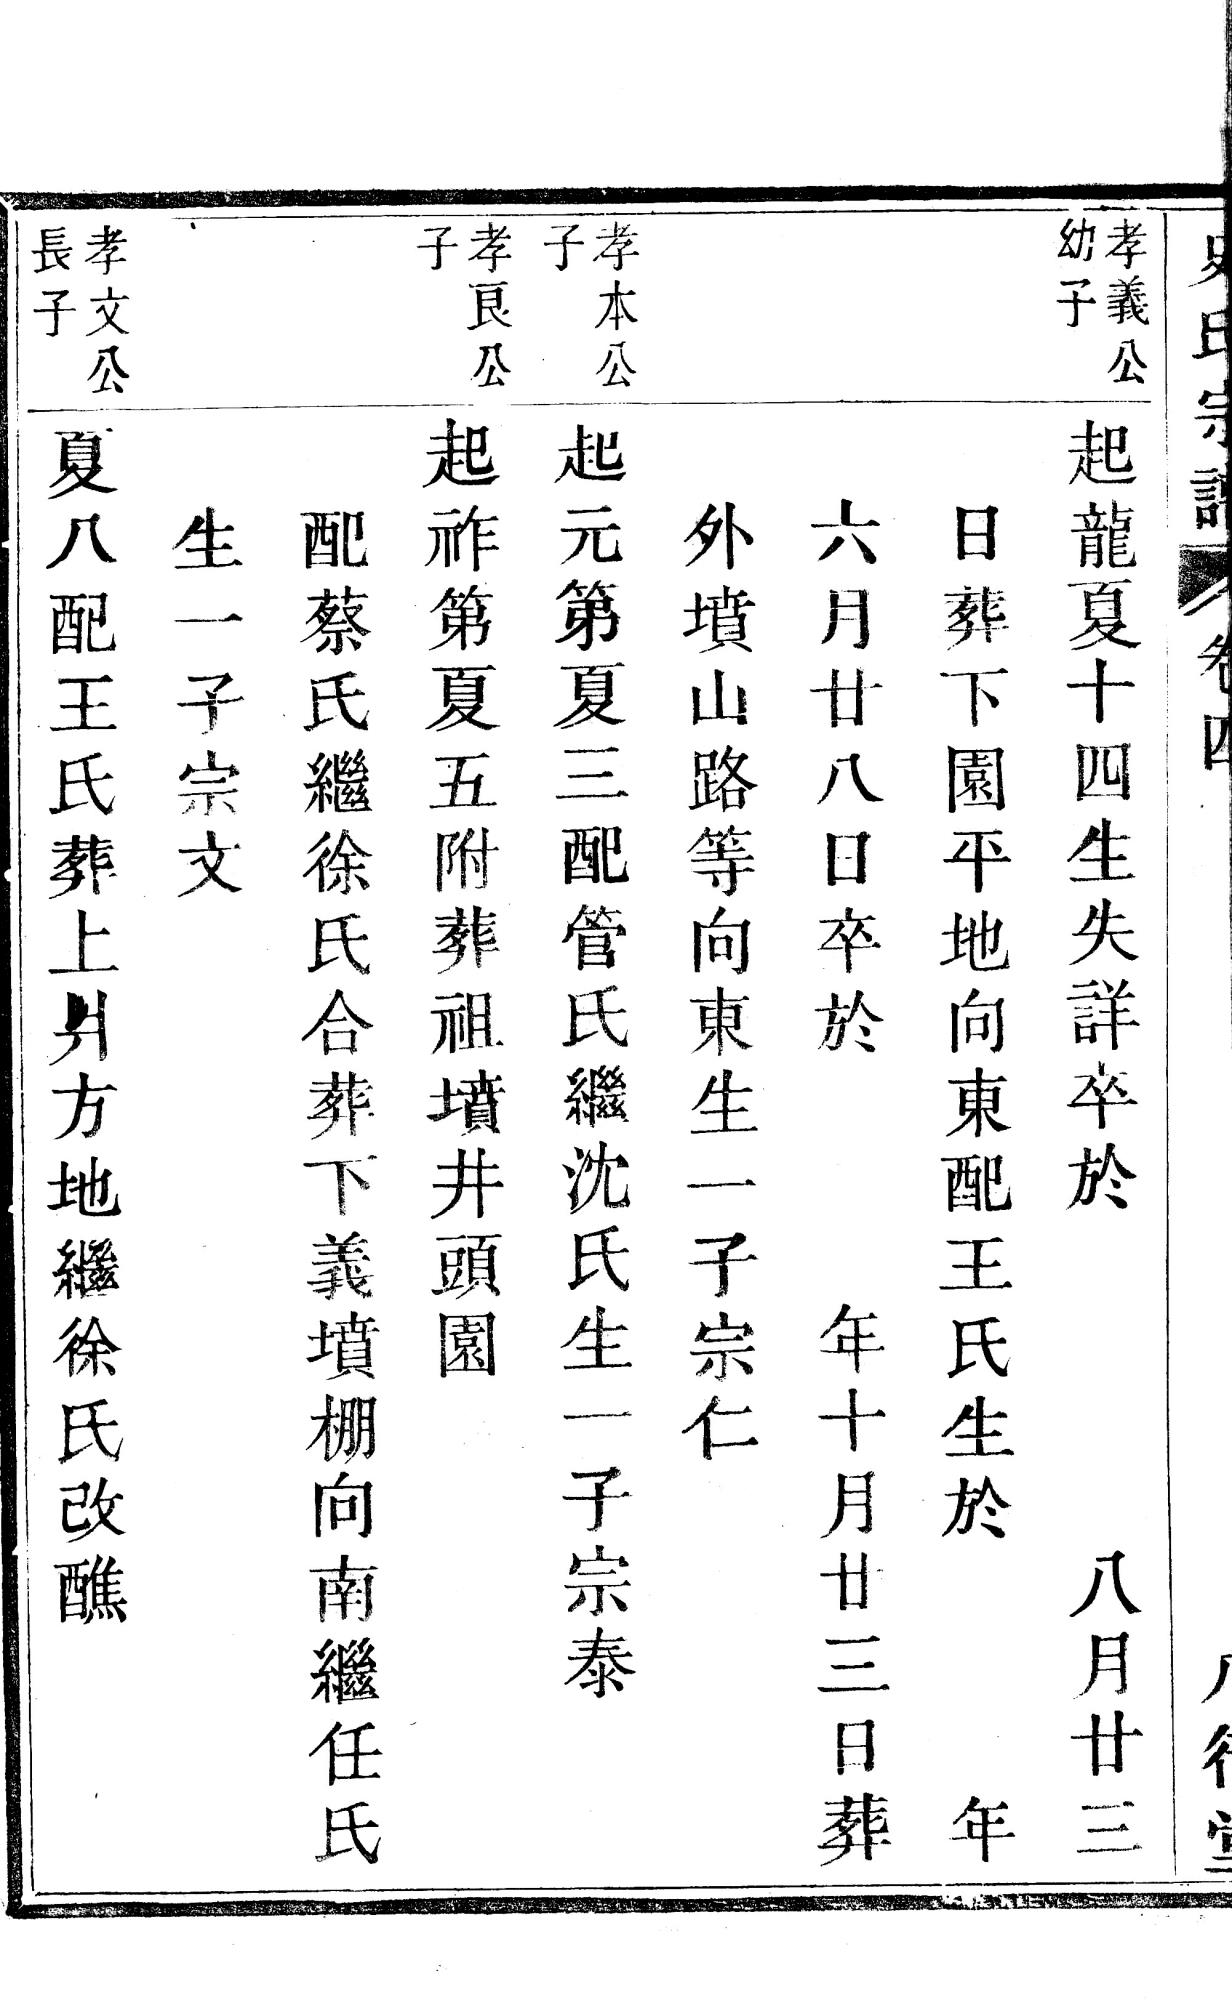 史氏宗譜 卷四 八行堂
孝義公
幼子
起龍夏十四生失詳卒於 八月廿三
日葬下園平地向東配王氏生於 年
六月廿八日卒於 年十月廿三日葬
外墳山路等向東生一子宗仁
孝本公
子
起元第夏三配管氏繼沈氏生一子宗泰
孝良公
子
起祚第夏五附葬祖墳井頭園
配蔡氏繼徐氏合葬下義墳棚向南繼任氏
生一子宗文
孝文公
長子
夏八配王氏葬上爿方地繼徐氏改醮